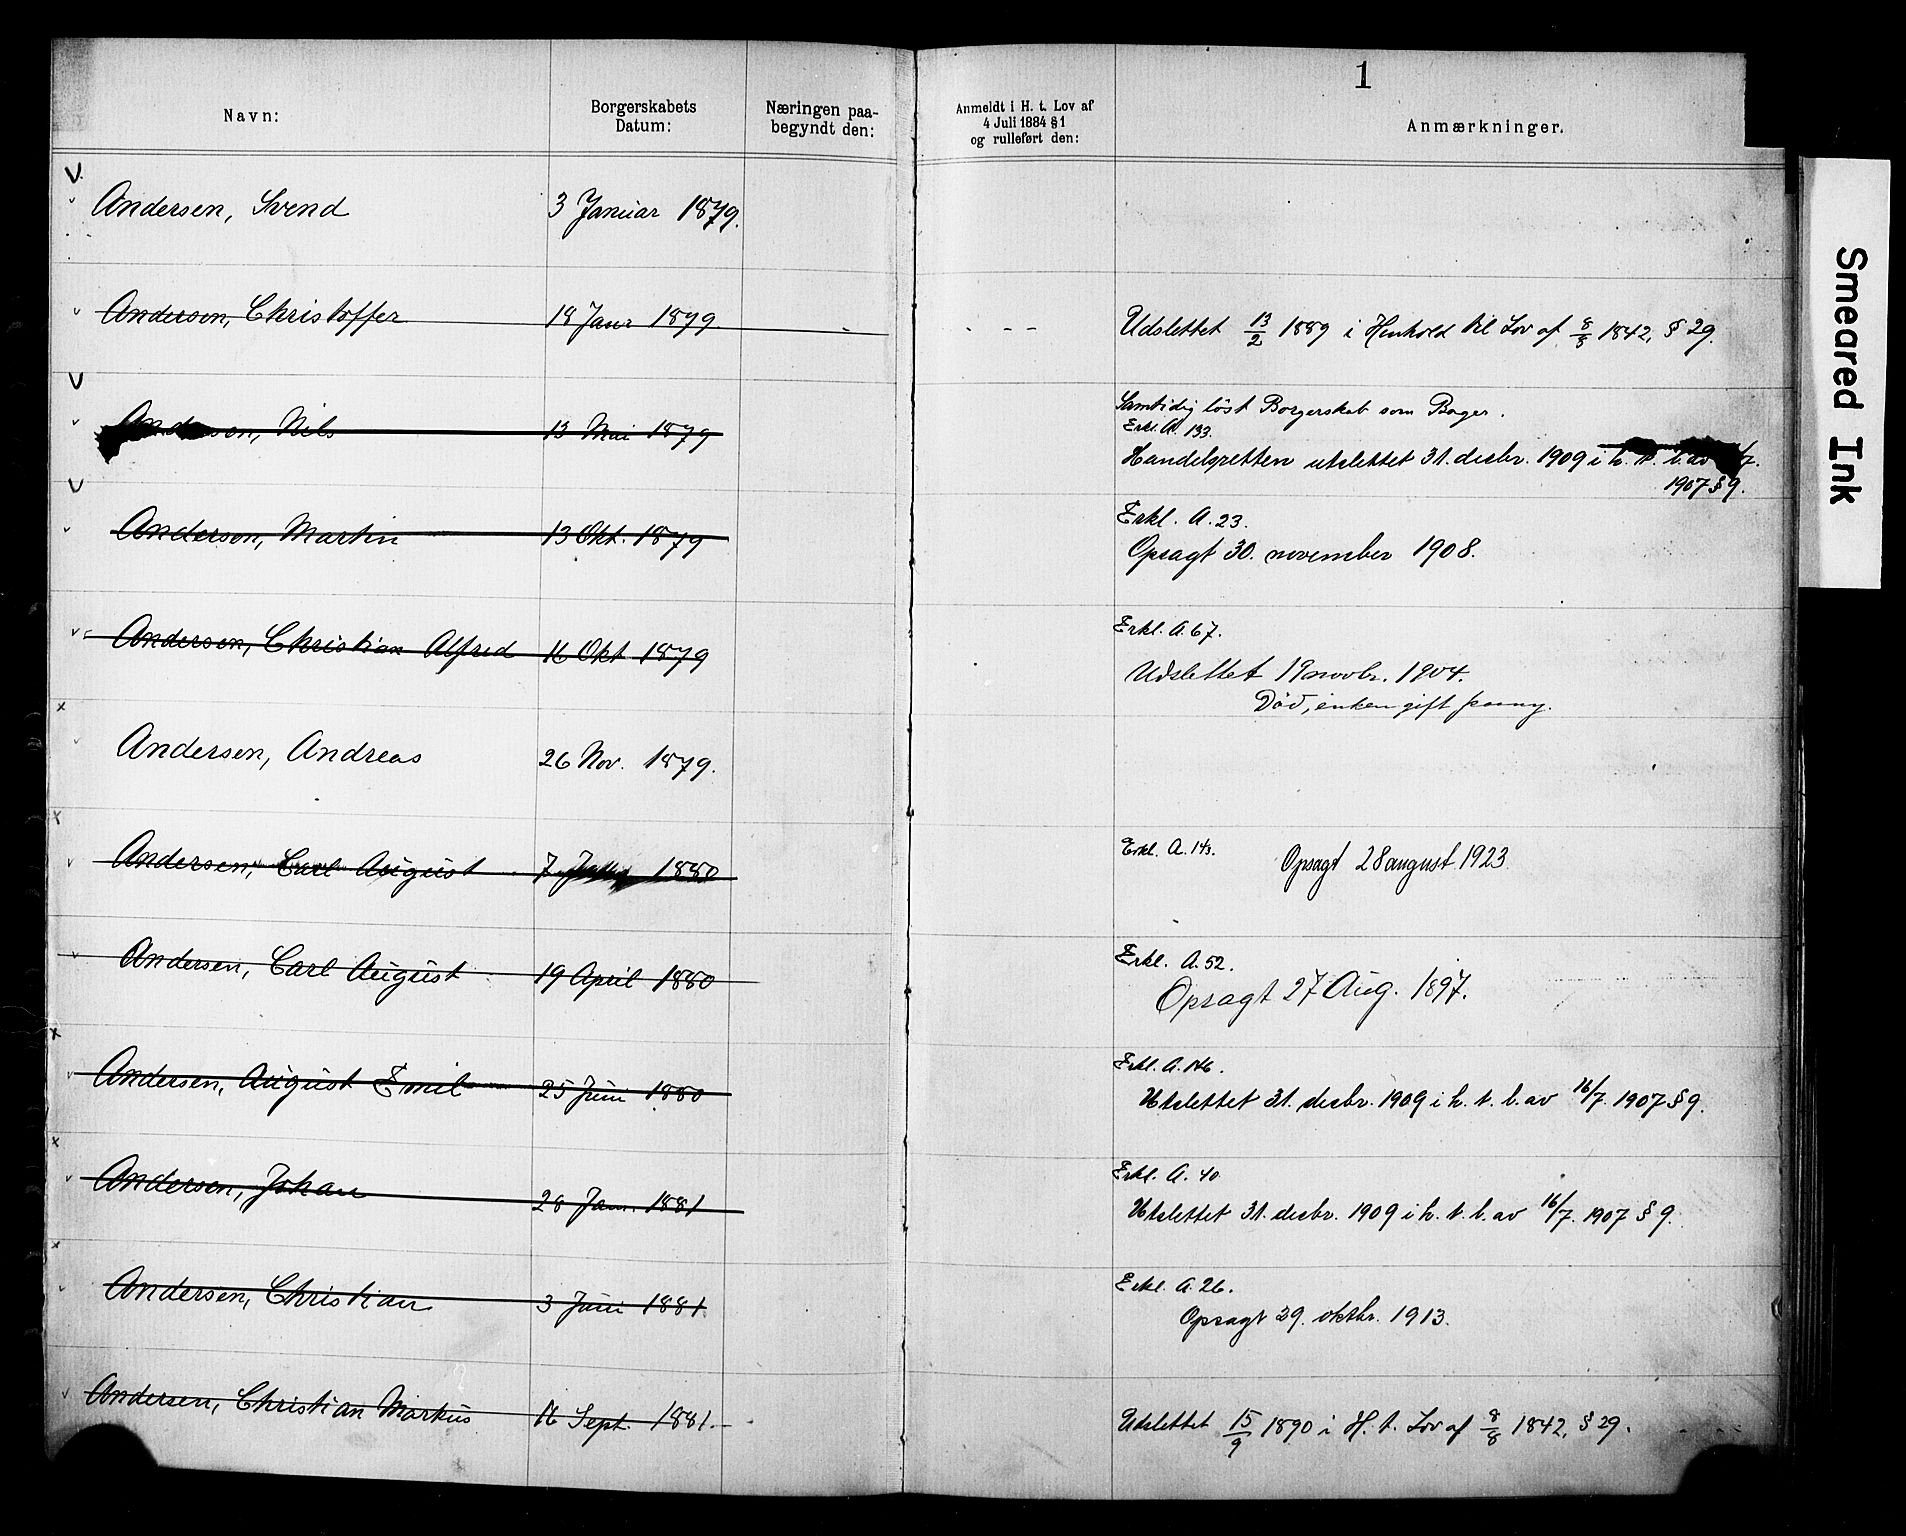 1
Navn:
Borgerskabets
Datum:
Næringen paa-
begyndt den:
Anmeldt i H. t. Lov af
4 Juli 1884 § 1
og rulleført den:
Anmærkninger.
Andersen, Svend 3 Januar 1879.
Andersen, Christoffer 18 Janr 1879. Udslettet 13/2 1889 i Henhold til Lov af 8/8 1842, § 29.
Samtidig löst Borgerskab som Bager.
Erkl. A. 133.
Andersen, Nils 13 Mai 1879 Handelsretten utslettet 31. desbr. 1909 i h. t. l. av /7.
1907 § 9.
Erkl. A. 23.
Andersen, Martin 13 Okt. 1879 Opsagt 30. november 1908.
Erkl. A. 67.
Andersen, Christian Alfred 16 Okt 1879 Udslettet 19 novbr. 1904.
Död, enken gift paany.
Andersen, Andreas 26 Nov. 1879.
Andersen, Carl August 7 1880 Erkl. A. 143. Opsagt 28 august 1923
Erkl. A. 52.
Andersen, Carl August 19 April 1880 Opsagt 27 Aug. 1897.
Erkl. A. 146.
Andersen, August Emil 25 Juni 1880 Utslettet 31. desbr. 1909 i h. t. l. av 16/7. 1907 § 9.
Erkl. A. 40
Andersen, Johan 28 Jan. 1881 Utslettet 31. desbr. 1909 i h. t. l. av 16/7. 1907 § 9.
Erkl. A. 26.
Andersen, Christian 3 Juni 1881 Opsagt 29. oktbr. 1913.
Andersen, Christian Markus 16 Sept. 1881. Udslettet 15/9 1890 i H. t. Lov af 8/8 1842, § 29.
Smeared Ink